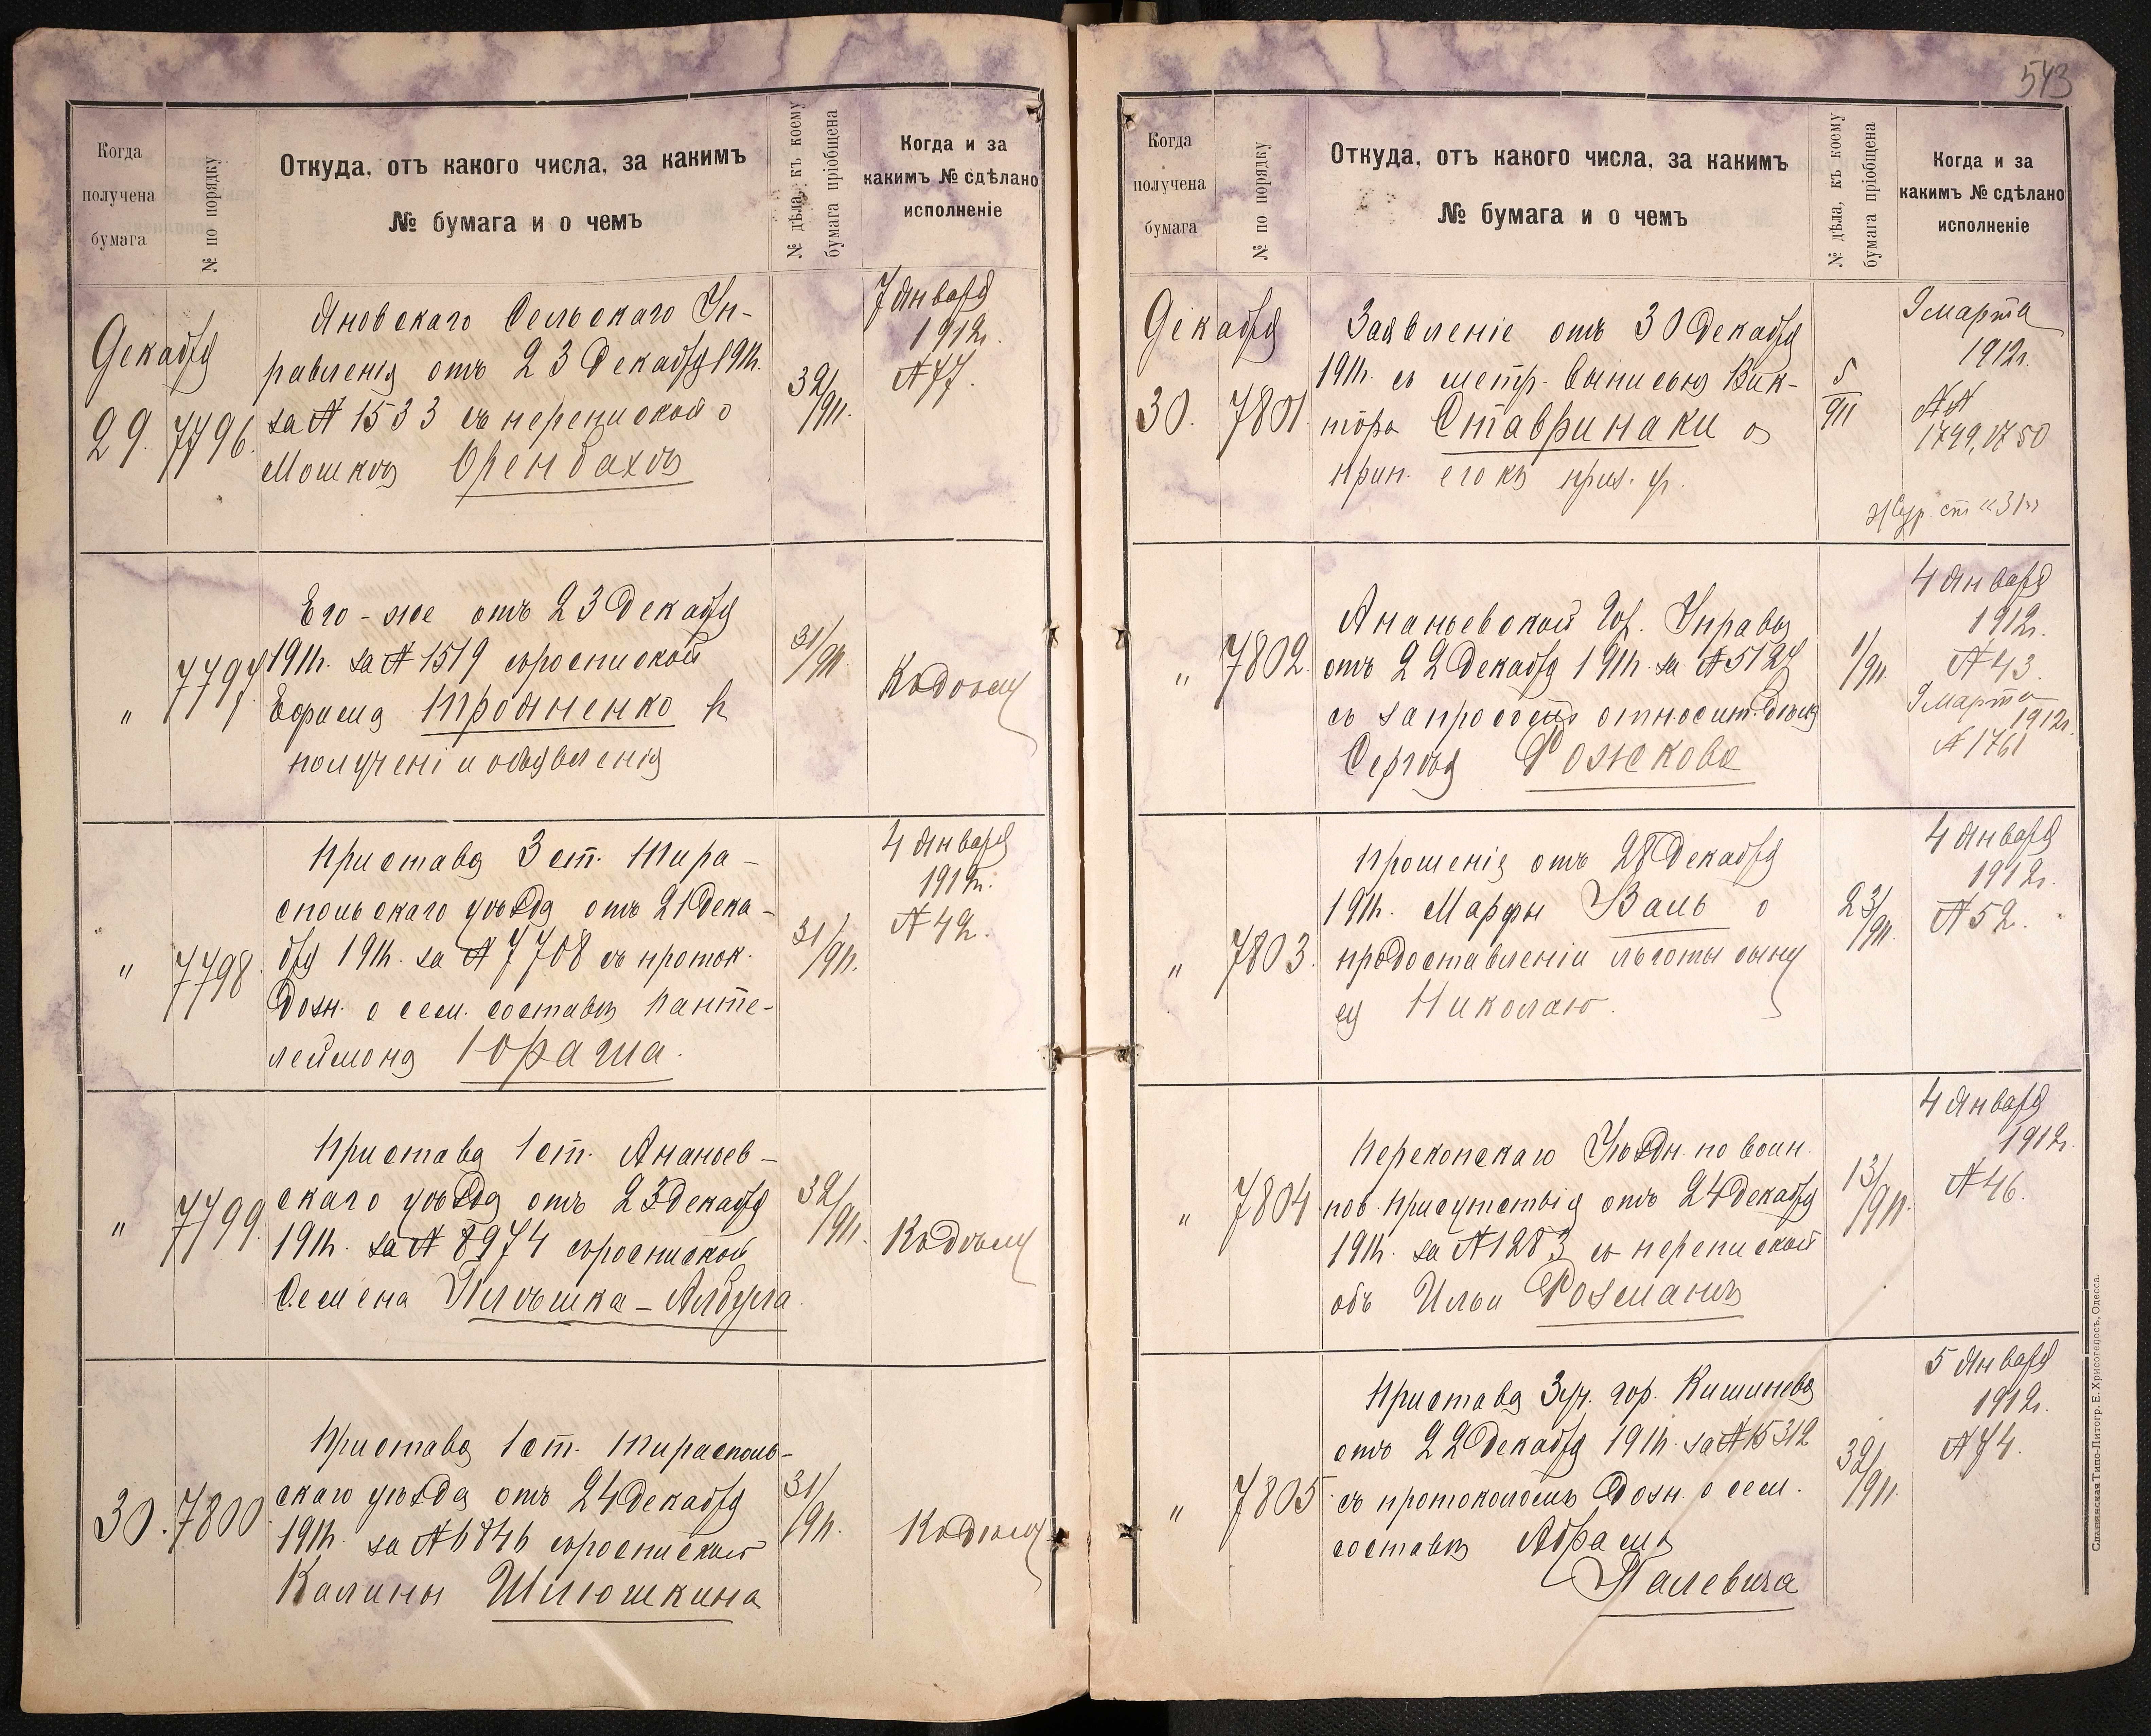 Когда
получена
бумага
№ по порядку
Откуда, отъ какого числа, за какимъ
№ бумага и о чемъ
№ дѣла, къ коему
бумага пріобщена
Когда и за
какимъ № сдѣлано
исполненіе
Декабря
29.
7796.
Яновскаго Сельскаго Уп-
равленія отъ 23 Декабря 1911г.
за № 1533 съ перепиской о
Мошкѣ Оренбахѣ
32/911.
7 Января
1912г.
№ 77.
"
7797
Его-же отъ 23 Декабря
1911г. за № 1519 съ роспиской
Ефима Трояненко въ
полученіи объявленія
31/911
Къ дѣлу
"
7798.
Пристава 3 ст. Тира-
спольскаго уѣзда отъ 21 Дека-
бря 1911г. за № 7708 съ проток.
дозн. о сем. составѣ Панте-
леймона Юраша.
31/911.
4 Января
1912г.
№ 42.
"
7799.
Пристава 1 ст. Ананьев-
скаго уѣзда отъ 23 Декабря
1911г. за № 8974 съ роспиской
Семена
32/911.
Къ дѣлу
30.
7800.
Пристава 1 ст. Тирасполь-
скаго уѣзда отъ 24 Декабря
1911г. за № 6846 съ роспиской
Калины Шлюшкина
31/911.
Къ дѣлу
543
Когда
получена
бумага
№ по порядку
Откуда, отъ какого числа, за какимъ
№ бумага и о чемъ
№ дѣла, къ коему
бумага пріобщена
Когда и за
какимъ № сдѣлано
исполненіе
Декабря
30.
7801.
Заявленіе отъ 30 Декабря
1911г. съ метр. выписью Вик-
тора Ставринаки о
прип. его къ приз. уч.
5/911
9 Марта
1912г.
№№
1749, 1750
Жур ст "31"
"
7802.
Ананьевской Гор. Управы
отъ 22 Декабря 1911г. за № 5127
съ запросомъ относит.
Сергѣя Рожкова
1/911.
4 Января
1912г.
№ 43.
9 Марта
1912г.
№ 1761
"
7803.
Прошенія отъ 28 Декабря
1911г. Марфы Валь о
предоставленіи льготы сыну
ея Николаю.
23/911.
4 Января
1912г.
№ 52.
"
7804
Перекопскаго Уѣздн. по воин.
пов. присутствія отъ 24 Декабря
1911г. за № 1283 съ перепиской
объ Ильи Розманъ
13/911.
4 Января
1912г.
№ 46.
"
7805
Пристава 3 уч. гор. Кишинева
отъ 22 Декабря 1911г. за № 15312
съ протоколомъ дозн. о сем.
составѣ Абрама
Палевича
32/911.
5 Января
1912г.
№ 74.
Славянская Типо-Литогр. Е. Хрисогелосъ, Одесса.